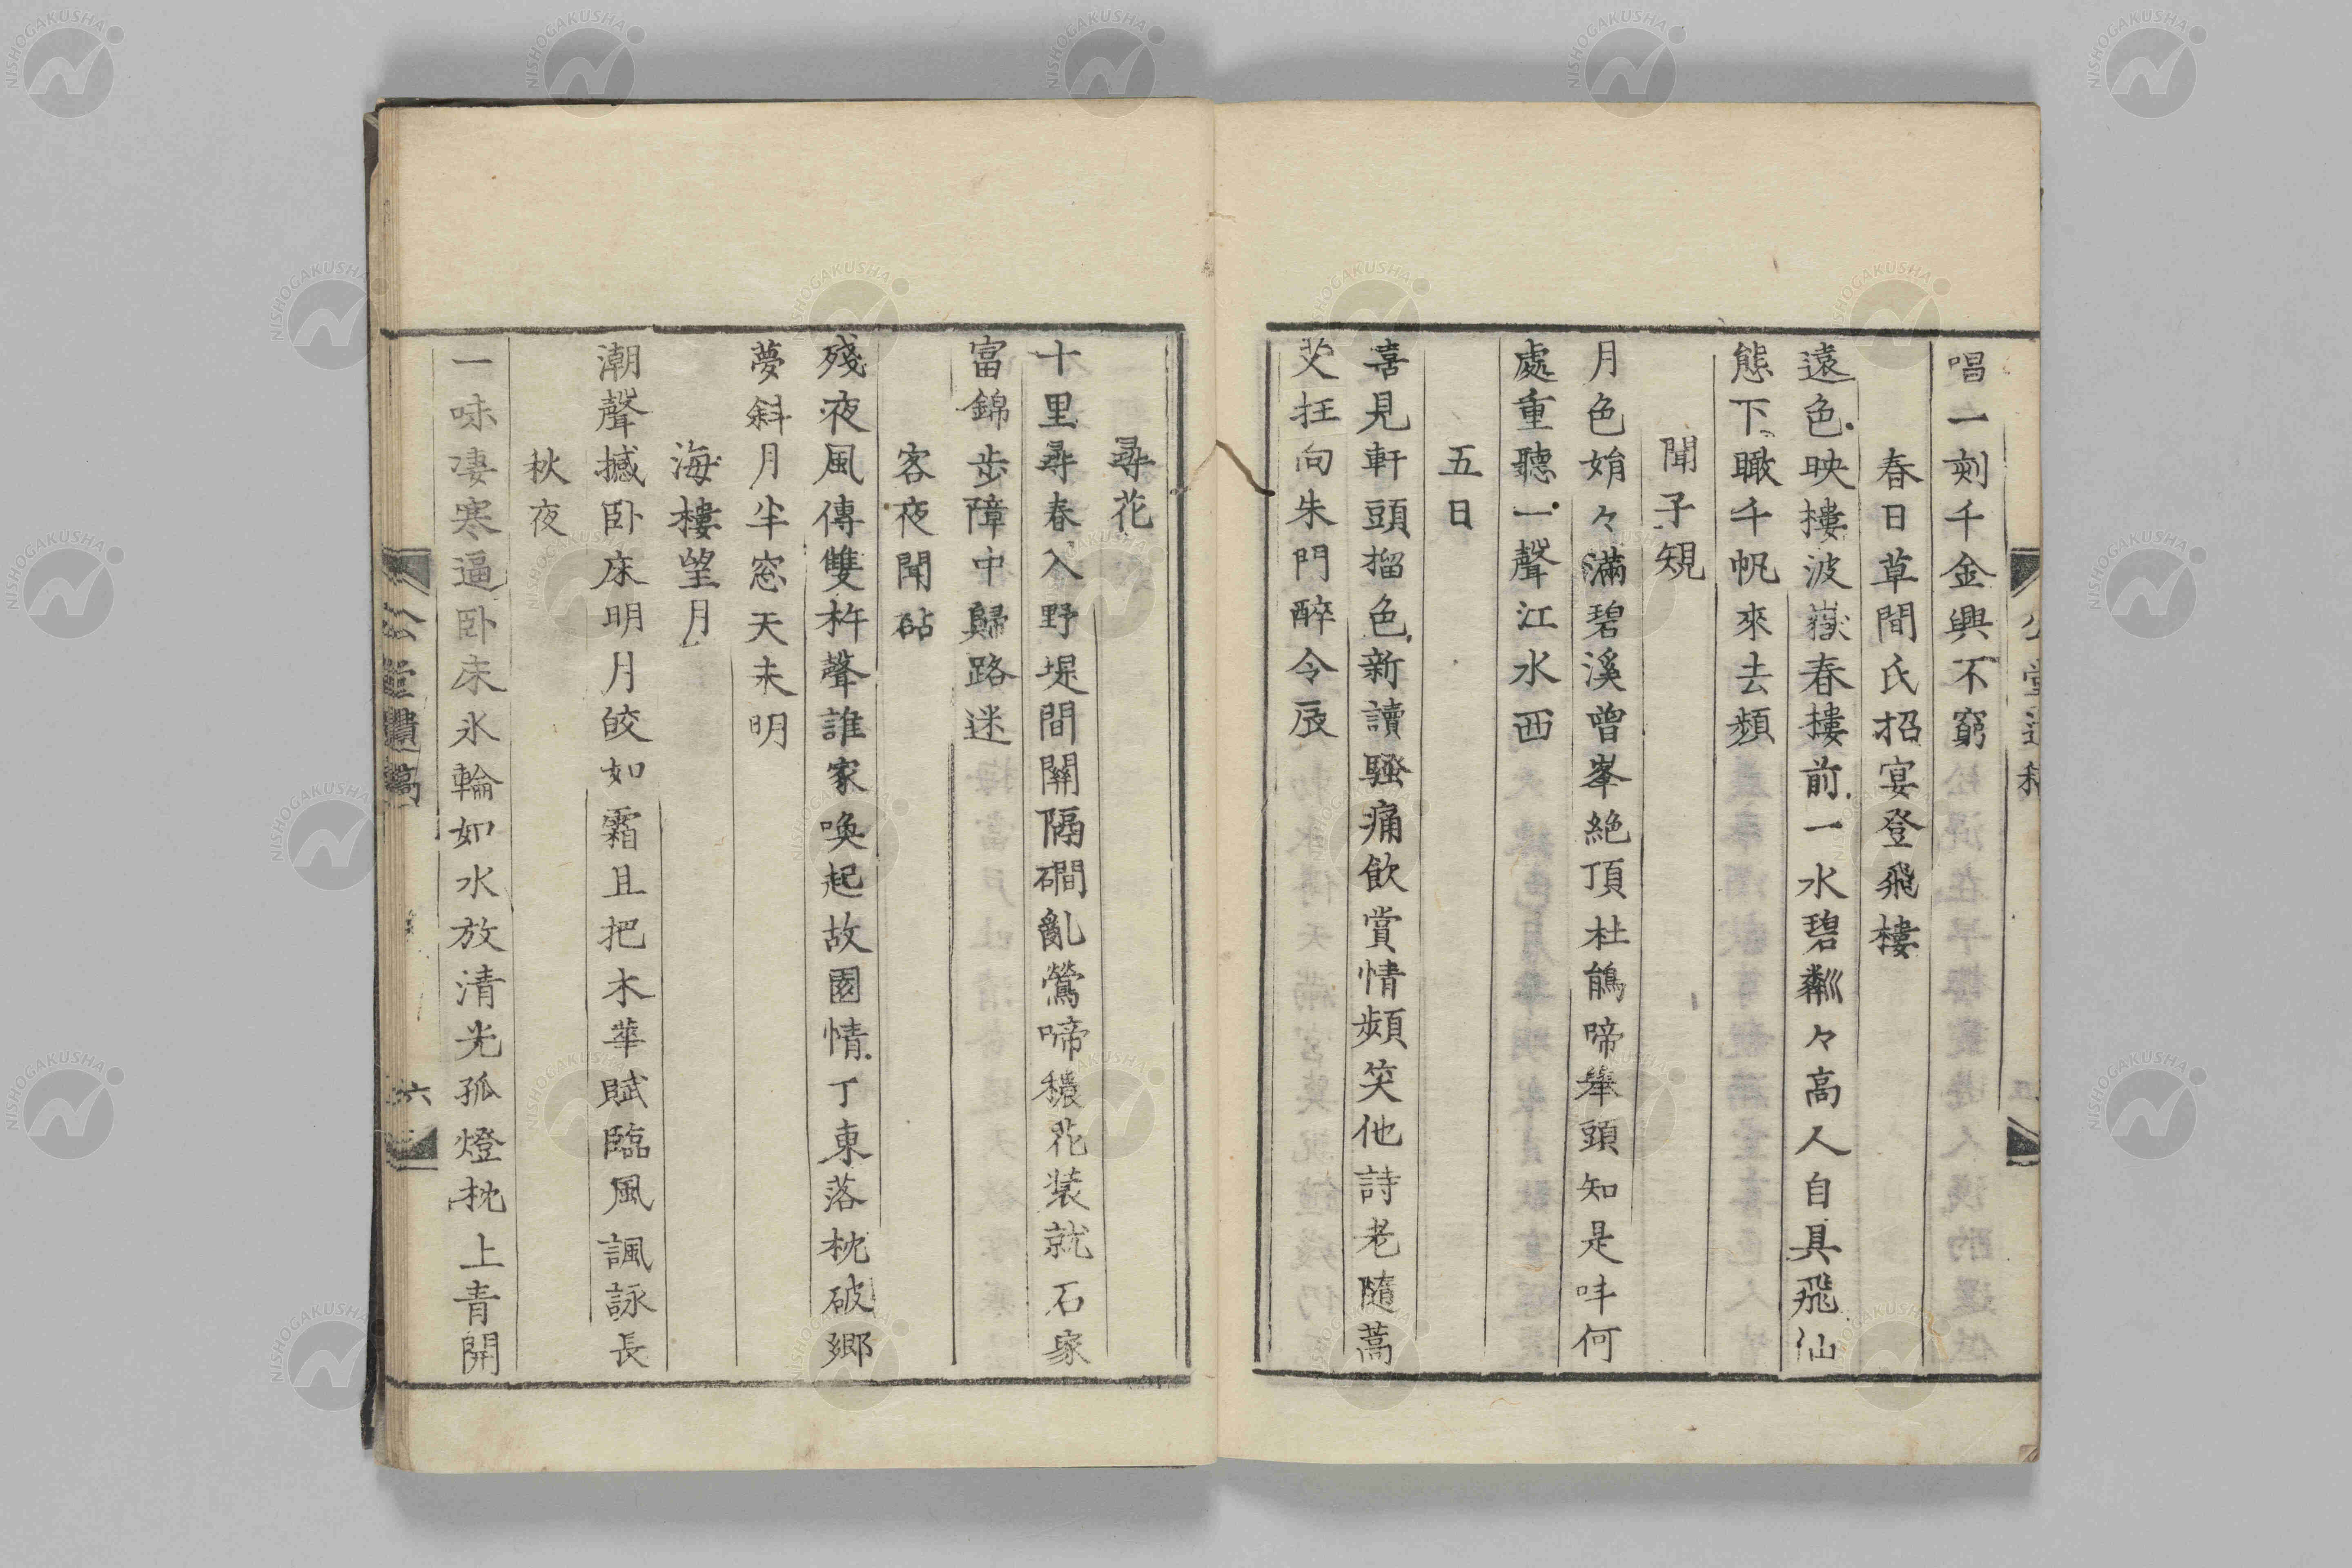 唱一刻千金興不窮
春日草間氏招宴登飛樓
遠色映樓波嶽春樓前一水碧粼々高人自具飛仙
態下瞰千帆來去頻
聞子規
月色娟々滿碧溪曾峯絕頂杜鵑啼舉頭知是吽何
處重聽一聲江水西
五日
喜見軒頭榴色新讀騷痛飲賞情頻笑他詩老隨蒿
艾抂向朱門醉令辰
尋花
十里尋春入野堤間關隔磵亂鶯啼穠花裝就石家
富錦步障中歸路迷
客夜聞砧
殘夜風傳雙杵聲誰家喚起故園情丁東落枕破鄉
夢斜月半窓天未明
海樓望月
潮聲撼臥床明月皎如霜且把木華賦臨風諷詠長
秋夜
一味凄寒逼臥床氷輪如水放清光孤燈枕上青開
公堂遺稿
六